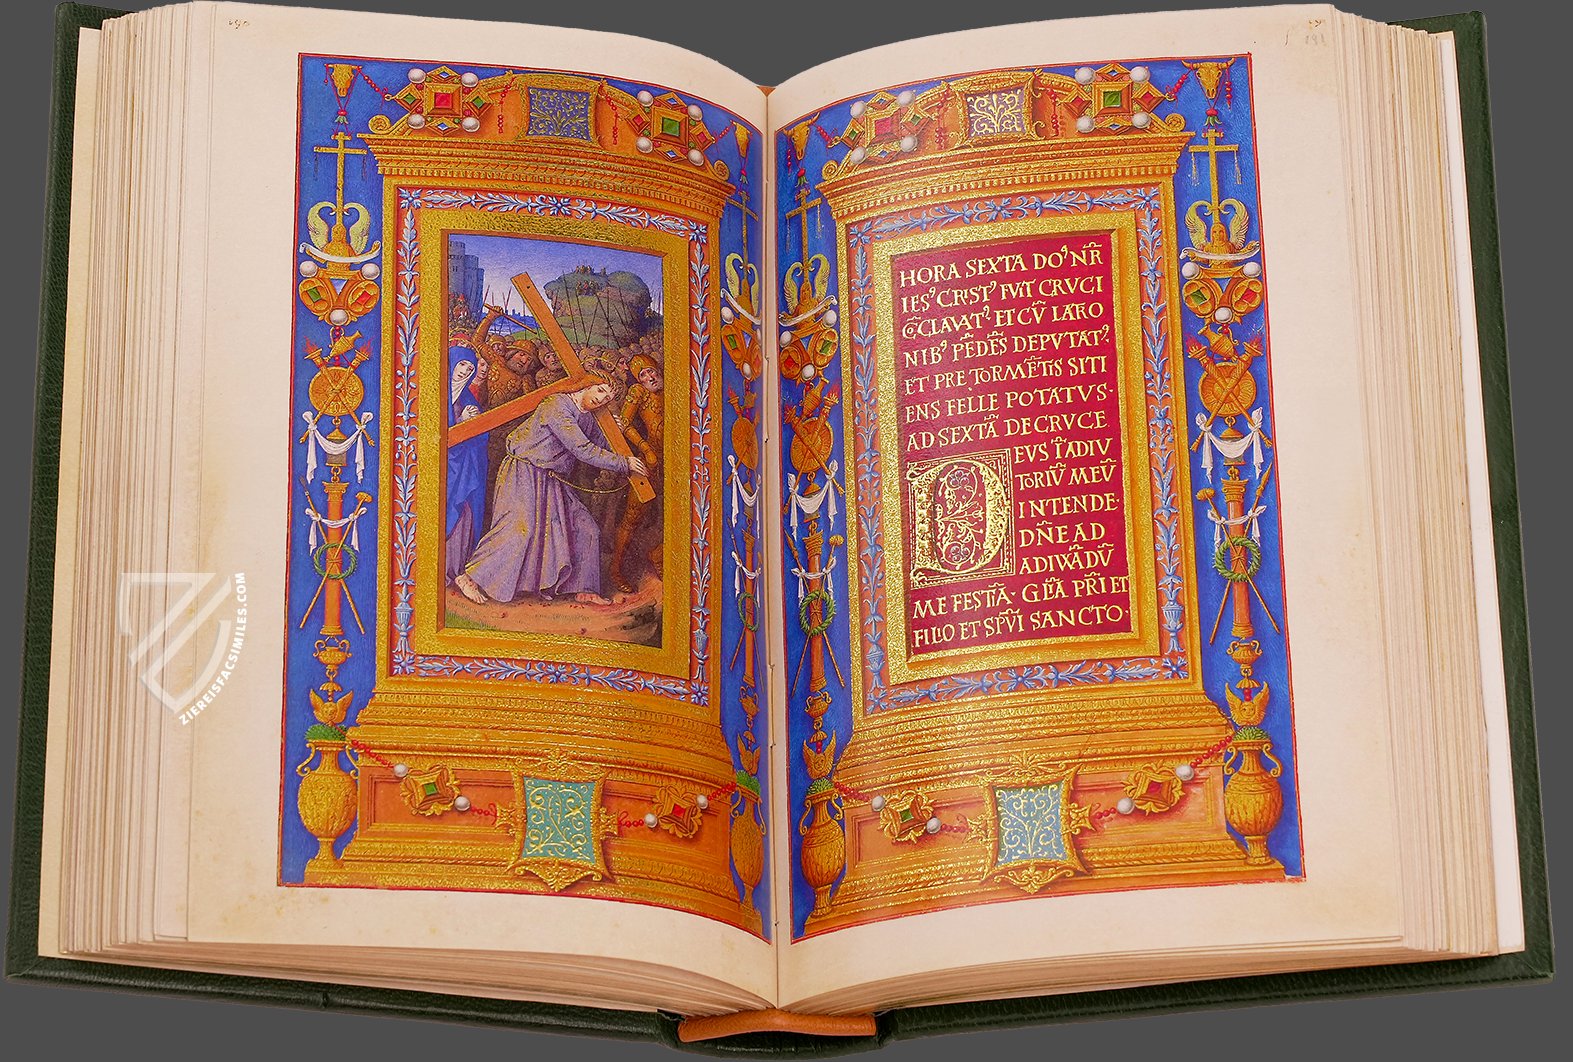 190
191
HORA SEXTA DO⁹ NR̃
IES⁹ CRIST⁹ FVIT CRVCI
CÕCLAVAT⁹. ET CV̄ LATRO
NIB⁹ PĒDĒS DEPVTAT⁹.
ET PRE TORMĒTIS SITI
ENS FELLE POTATVS·
AD SEXTĀ DE CRVCE
DEVS Ī ADIV
TORIV̄ MEV̄
INTENDE·
DÑE AD
ADIVVĀDV̄
ME FESTĪA· GL̃A PR̃I ET
FILIO ET SP̃VI SANCTO·
ZIEREISFACSIMILES.COM